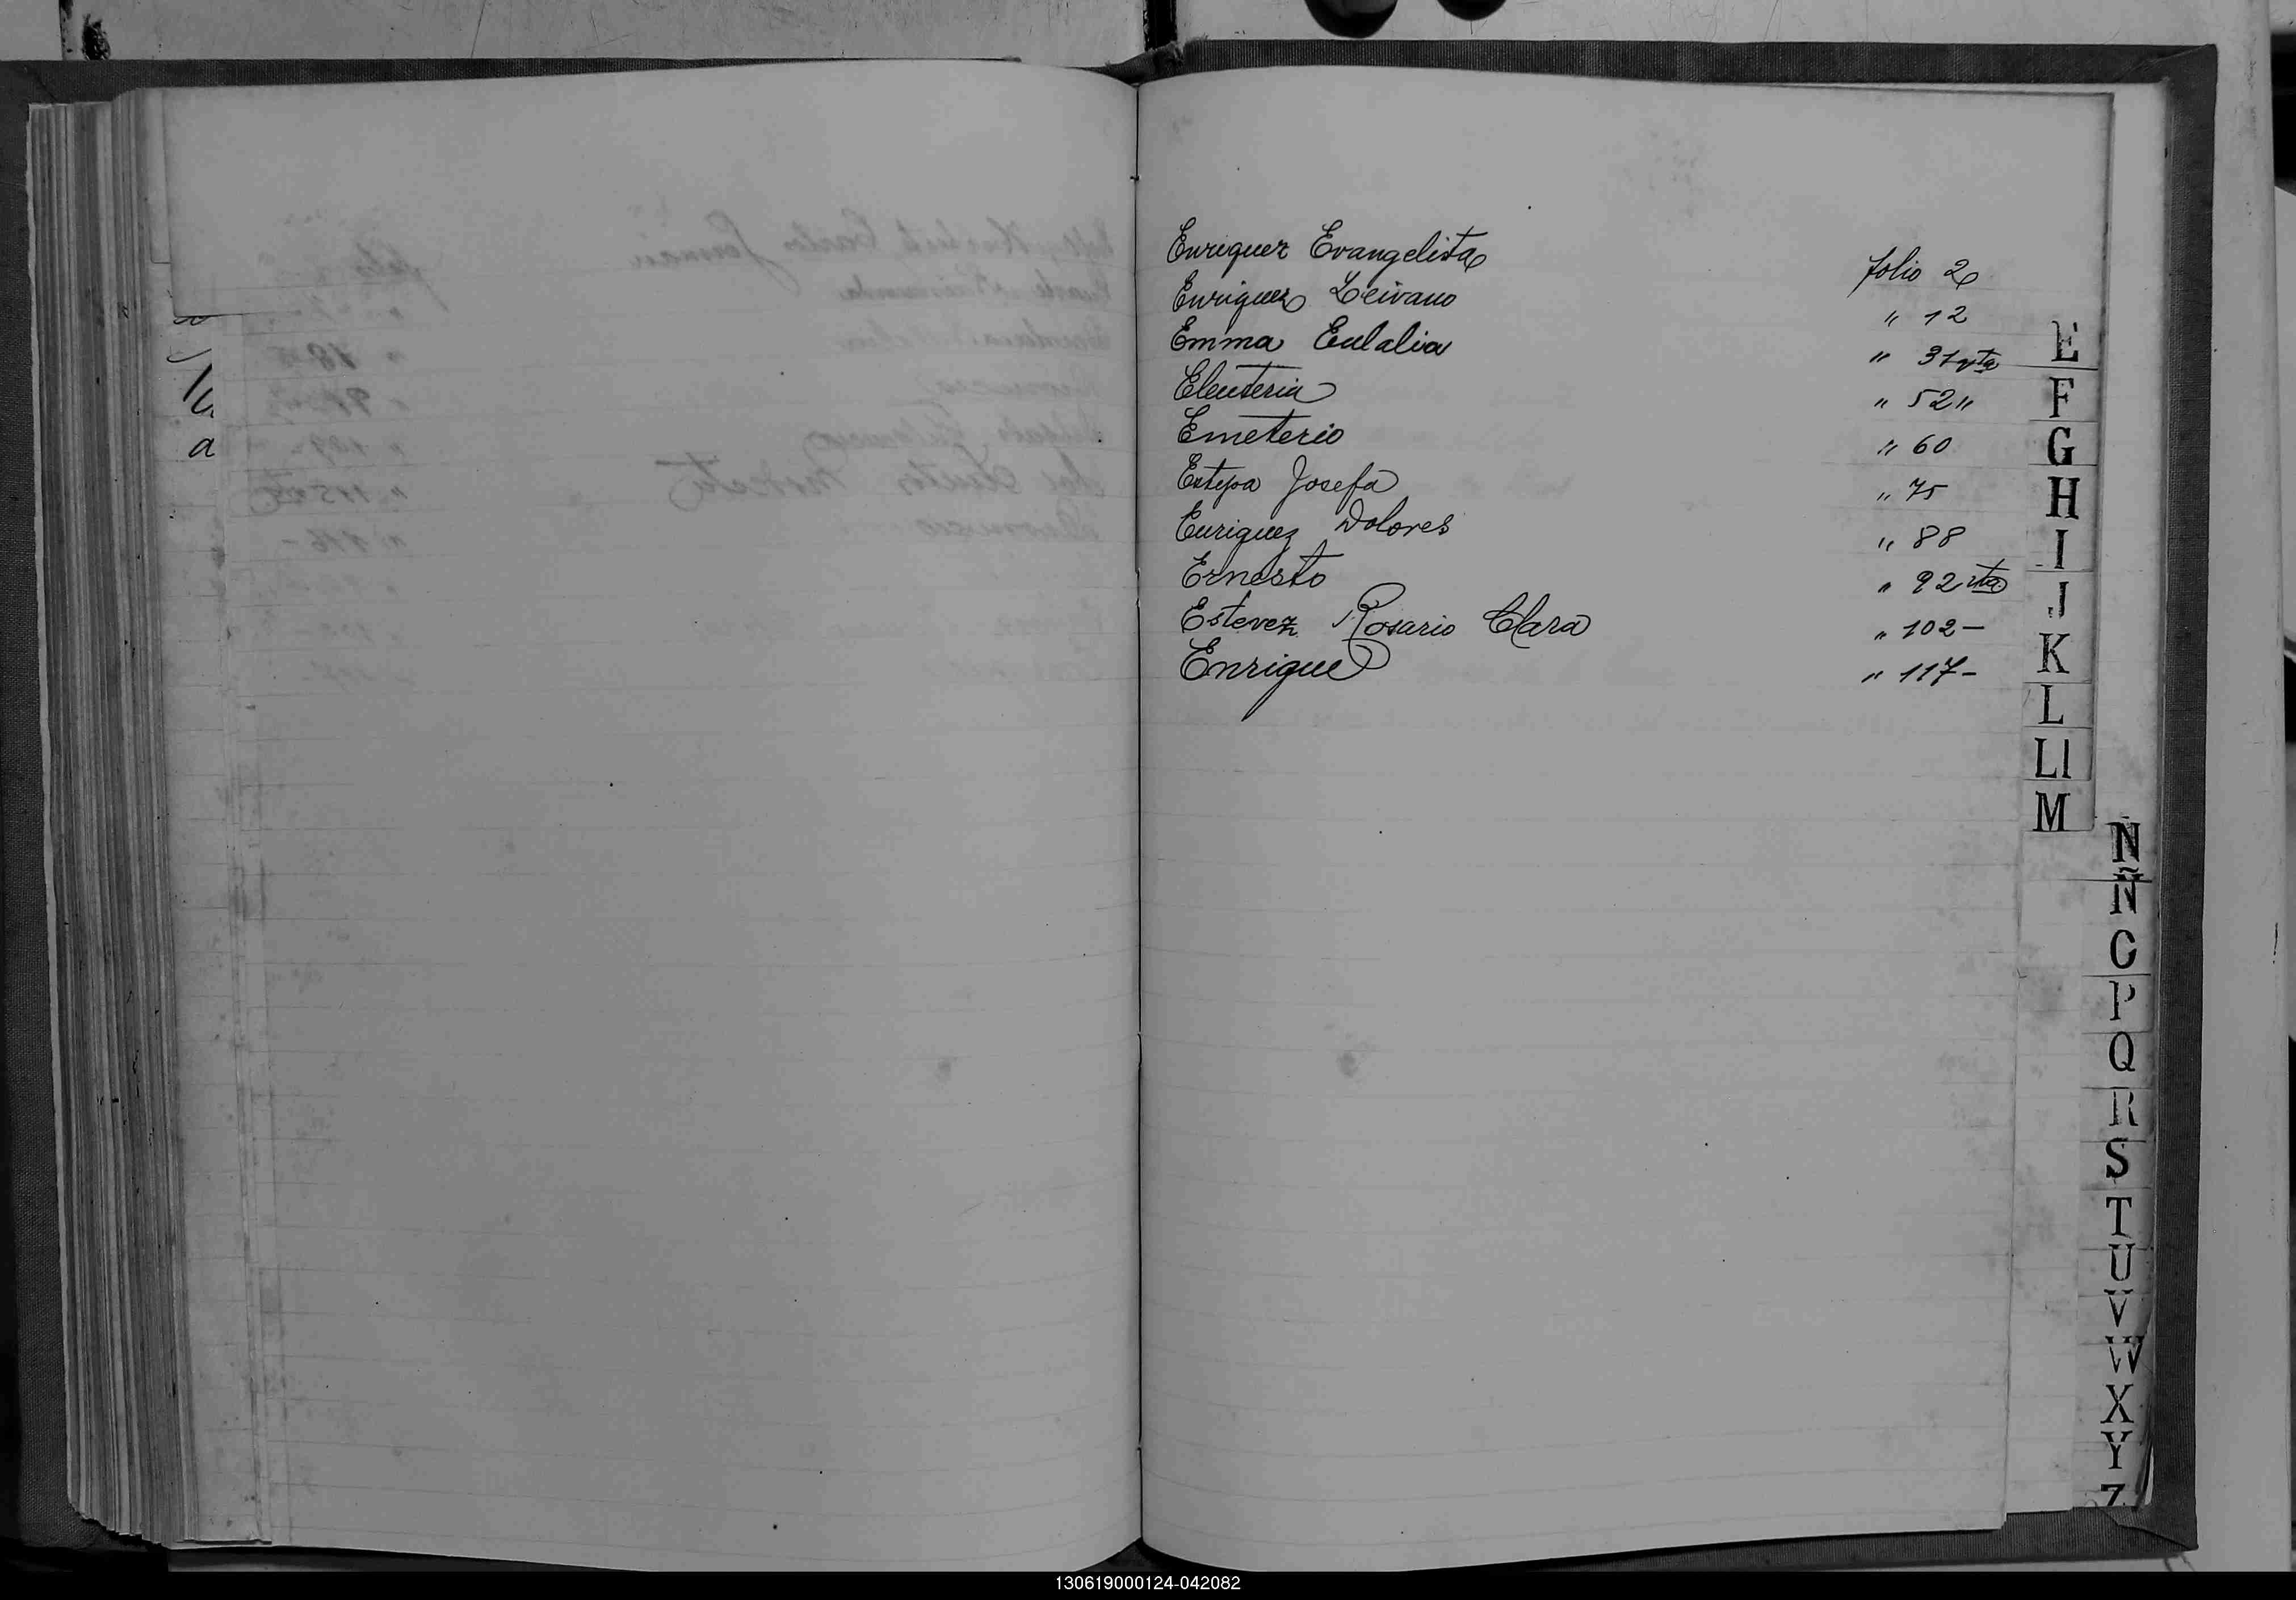 a
Enriquez Evangelista folio 2
Enriquez Leivano " 12
Emma Eulalia " 31 vta
Eleuteria " 52 "
Emeterio " 60
Estepa Josefa " 75
Enriquez Dolores " 88
Ernesto " 92 vta
Estevez Rosario Clara " 102 -
Enrique " 117 -
E
F
G
H
I
J
K
L
Ll
M
N
Ñ
O
P
Q
R
S
T
U
V
W
X
Y
Z
130619000124-042082